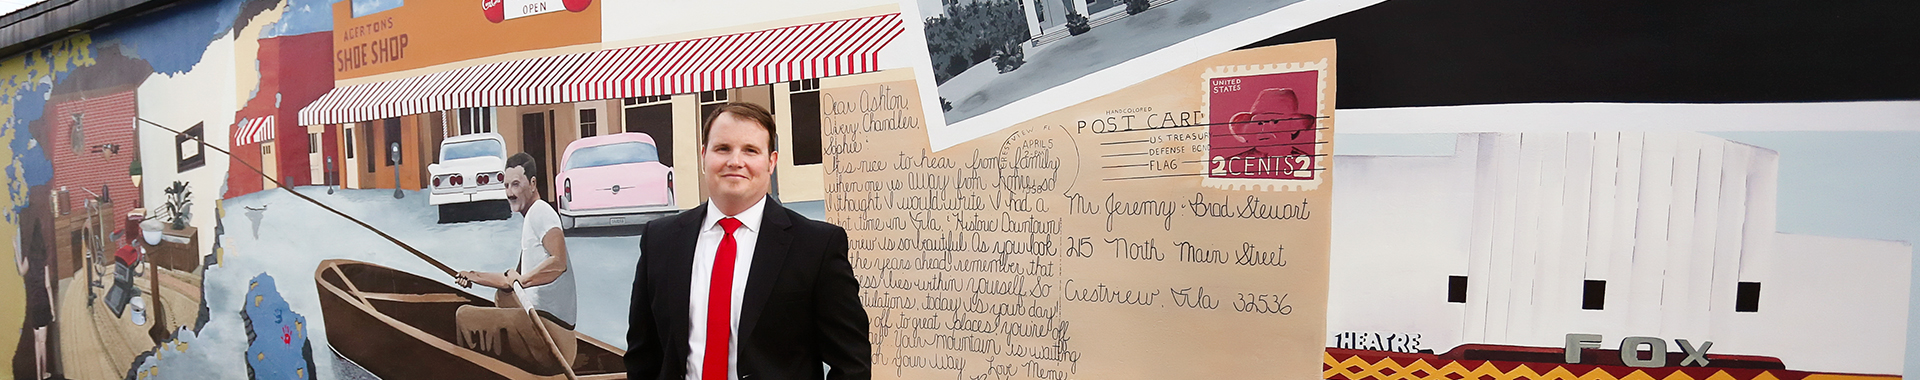 OPEN
AGERTONS
SHOE SHOP
Dear Ashton,
Avery, Chandler,
Sophie
It's nice to hear from family
when one is away from home, so
thought I would write. I had a
time in Fla. Historic Downtown
is so beautiful. As you look
the years ahead remember that
lies within yourself. So
today is your day!
off to great places you're off
Your mountain is waiting
your way Love Meme
HANDCOLORED
POST CARD
APRIL 5
US TREASUR
DEFENSE BON
FLAG
UNITED
STATES
2 CENTS 2
Mr Jeremy Brad Stewart
215 North Main Street
Crestview, Fla 32536
THEATRE
FOX